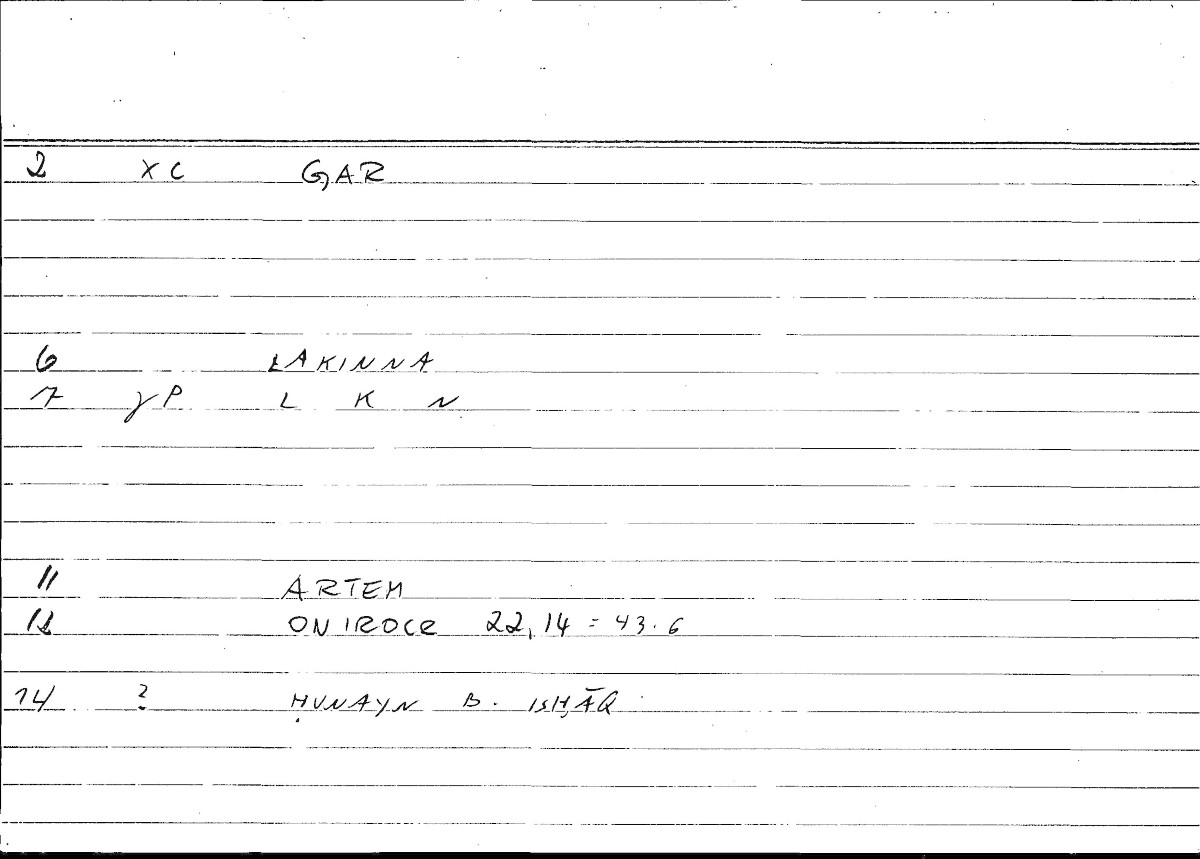 2 XC GAR
6 LAKINNA
7 γP L K N
11 ARTEM
12 ONIROCR 22,14 = 43.6
14 ? ḤUNAYN B. ISḤĀQ